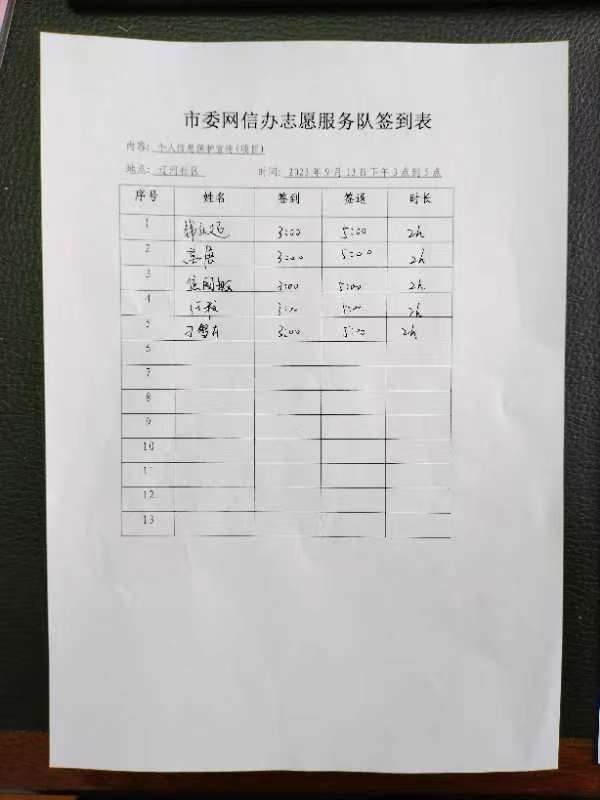 市委网信办志愿服务队签到表
内容: 个人信息保护宣传(项目)
地点: 辽河社区 时间: 2023年9月13日下午3点到5点
序号 姓名 签到 签退 时长
1 3:00 5:00 2h
2 3:00 5:00 2h
3 3:00 5:00 2h
4 3:00 5:00 2h
5 3:00 5:00 2h
6
7
8
9
10
11
12
13